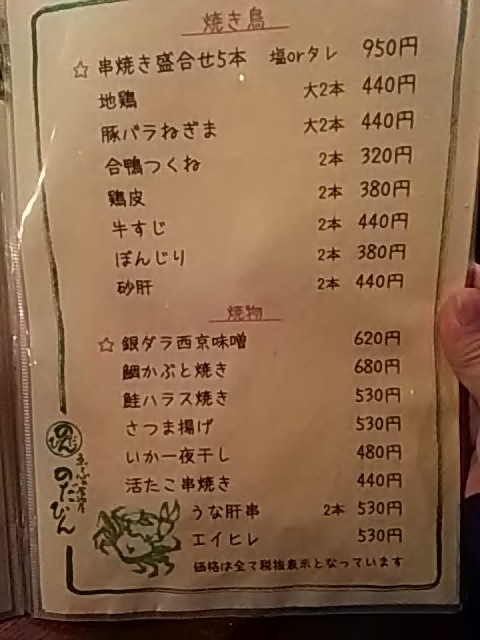 焼き鳥
☆ 串焼き盛合せ5本 塩orタレ 950円
地鶏 大2本 440円
豚バラねぎま 大2本 440円
合鴨つくね 2本 320円
鶏皮 2本 380円
牛すじ 2本 440円
ぼんじり 2本 380円
砂肝 2本 440円
焼物
☆ 銀ダラ西京味噌 620円
鯛かぶと焼き 680円
鮭ハラス焼き 530円
さつま揚げ 530円
いか一夜干し 480円
活たこ串焼き 440円
うな肝串 2本 530円
エイヒレ 530円
価格は全て税抜表示となっています
のだびん